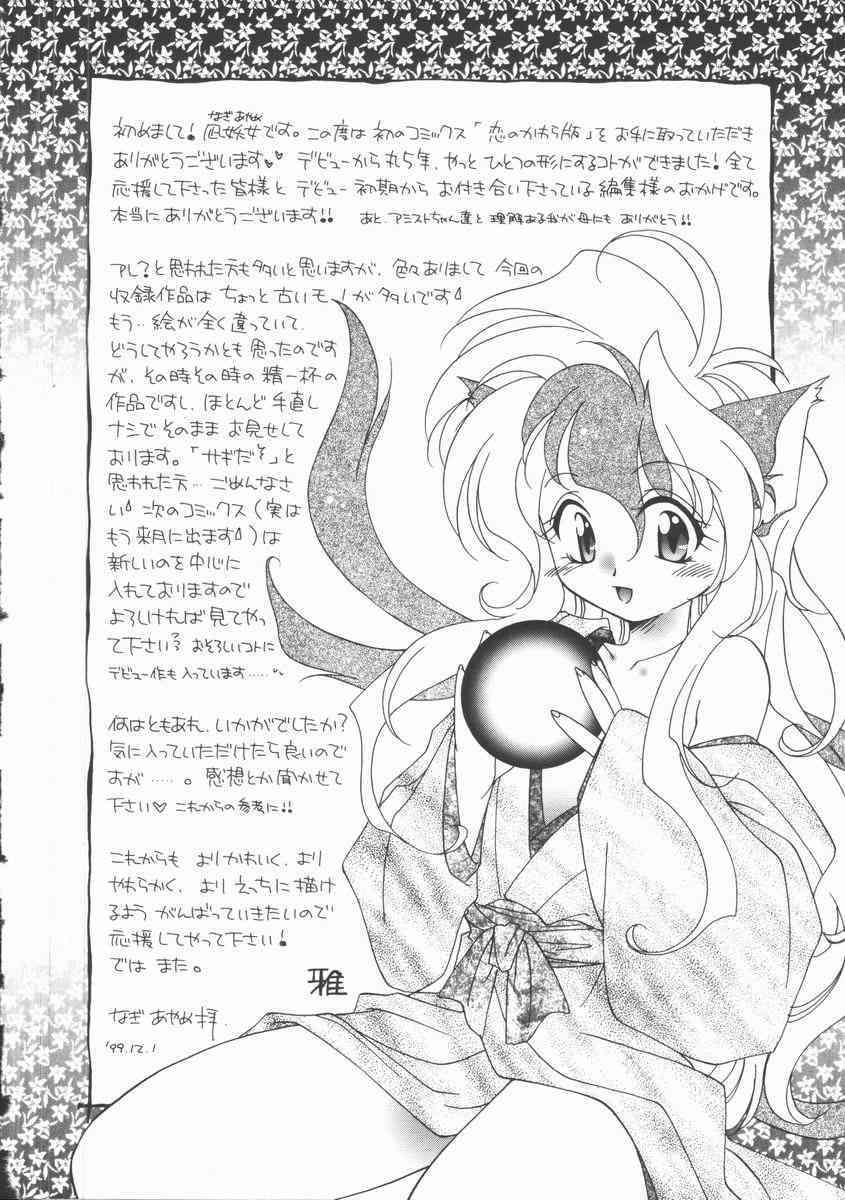 なぎあやめ
初めまして!凪妖女です。この度は初のコミックス「恋のかわら版」をお手に取っていただき
ありがとうございます♥♥ デビューから丸5年、やっと ひとつの形にするコトができました!全て
応援して下さった皆様と デビュー初期から お付き合い下さっている 編集様のおかげです。
本当にありがとうございます!! あと、アミストちゃん達と 理解ある我が母にも ありがとう!!
アレ?と思われた方も多いと思いますが、色々ありまして 今回の
収録作品は ちょっと古いモノが多いです
もう‥絵が全く違っていて、
どうしてやろうかとも思ったのです
が、その時その時の精一杯の
作品ですし、ほとんど手直し
ナシでそのまま お見せして
おります。「サギだぞ」と
思われた方… ごめんなさ
い 次のコミックス(実は
もう来月に出ます)は
新しいのを中心に
入れておりますので
よろしければ見てやっ
て下さい おそろしいコトに
デビュー作も入っています……
何はともあれ、いかがでしたか?
気に入っていただけたら良いので
すが……。感想とか聞かせて
下さい♡ これからの参考に!!
これからも よりかわいく、より
やわらかく、より えっちに描け
るよう がんばっていきたいので
応援してやって下さい!
では また。
雅
なぎ あやめ 拝.
'99.12.1